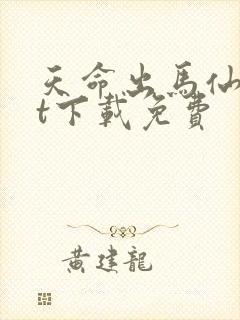 天命出馬仙
t下載免費
黄建龍